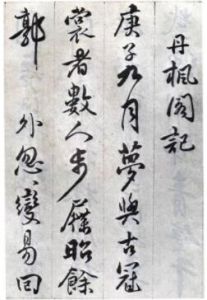 丹枫阁記
庚子九月夢與古冠
裳者數人步屧昭餘
郭外忽〻變易回